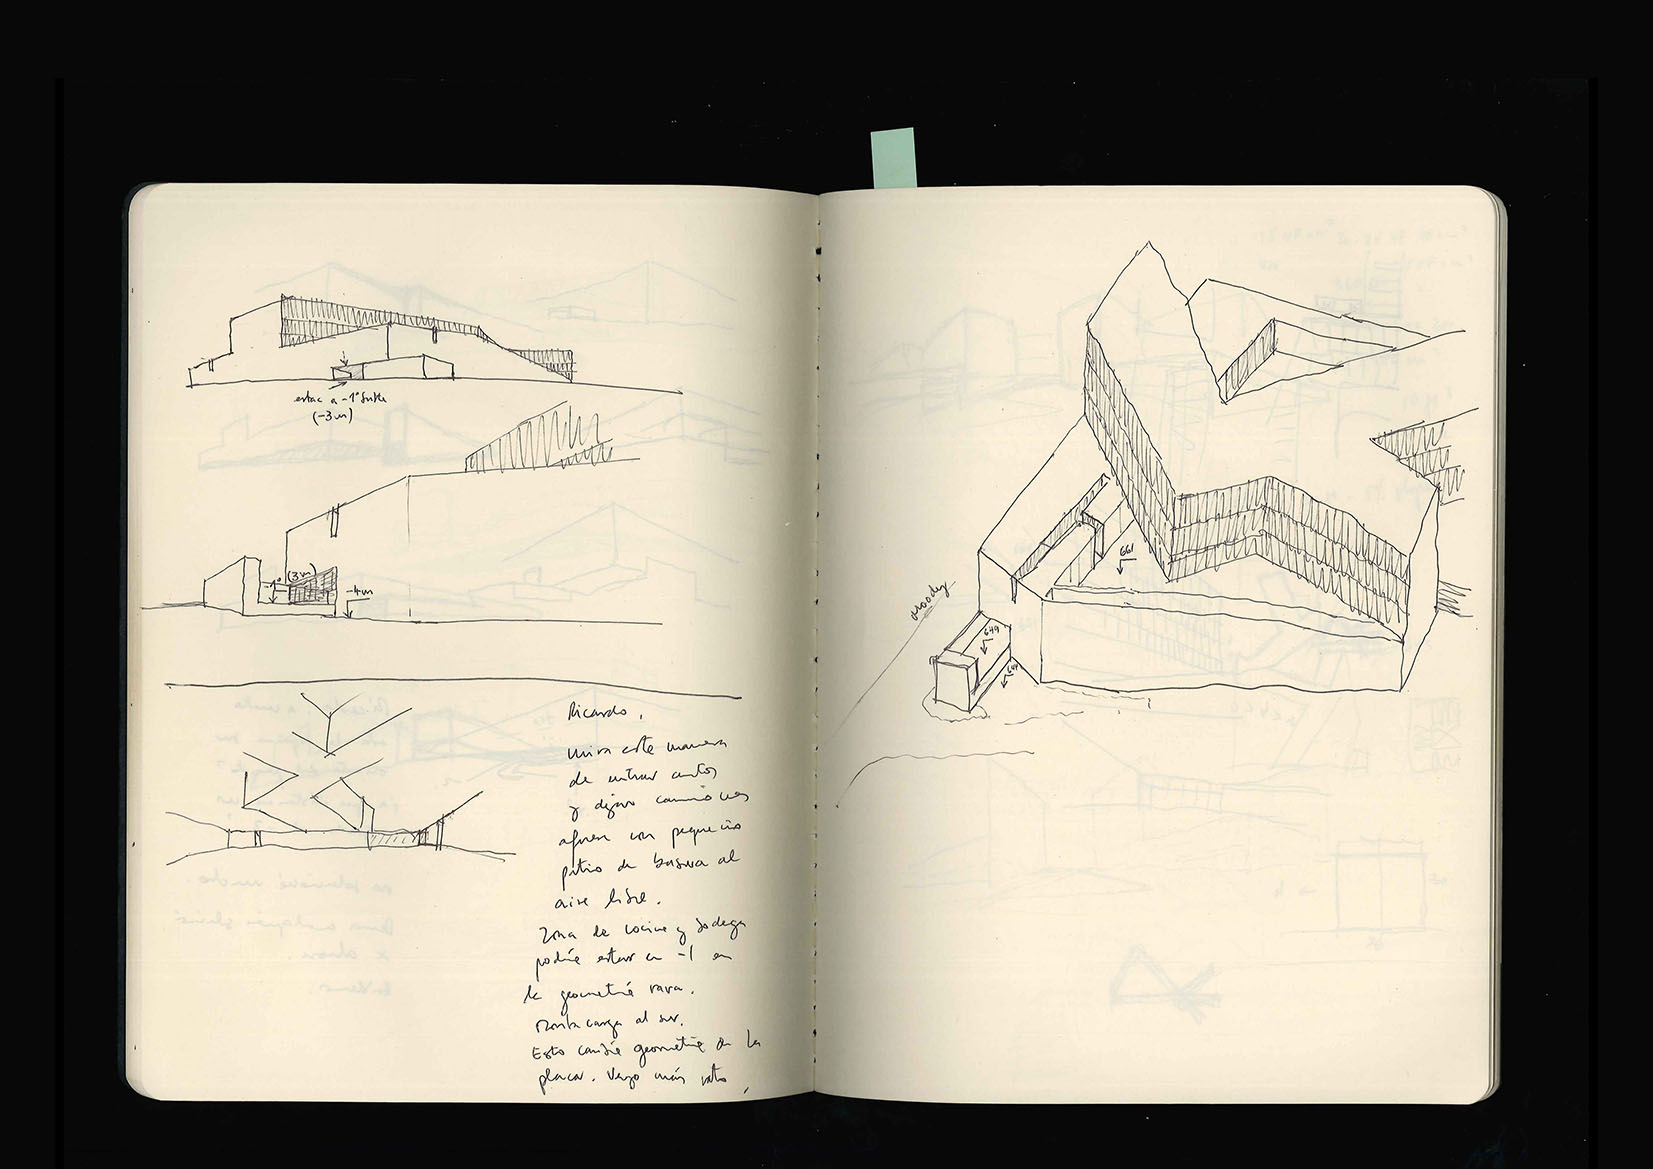 estac a -1º
(-3m)
(3m)
-4m
Ricardo,
mira esta manera
de entrar autos
y dejar camiones
afuera con pequeño
patio de basura al
aire libre.
Zona de cocina y bodega
podría estar en -1 en
la geometría rara.
Montacarga al sur.
Esto cambia geometría de la
placa. Vengo más rato.
661
649